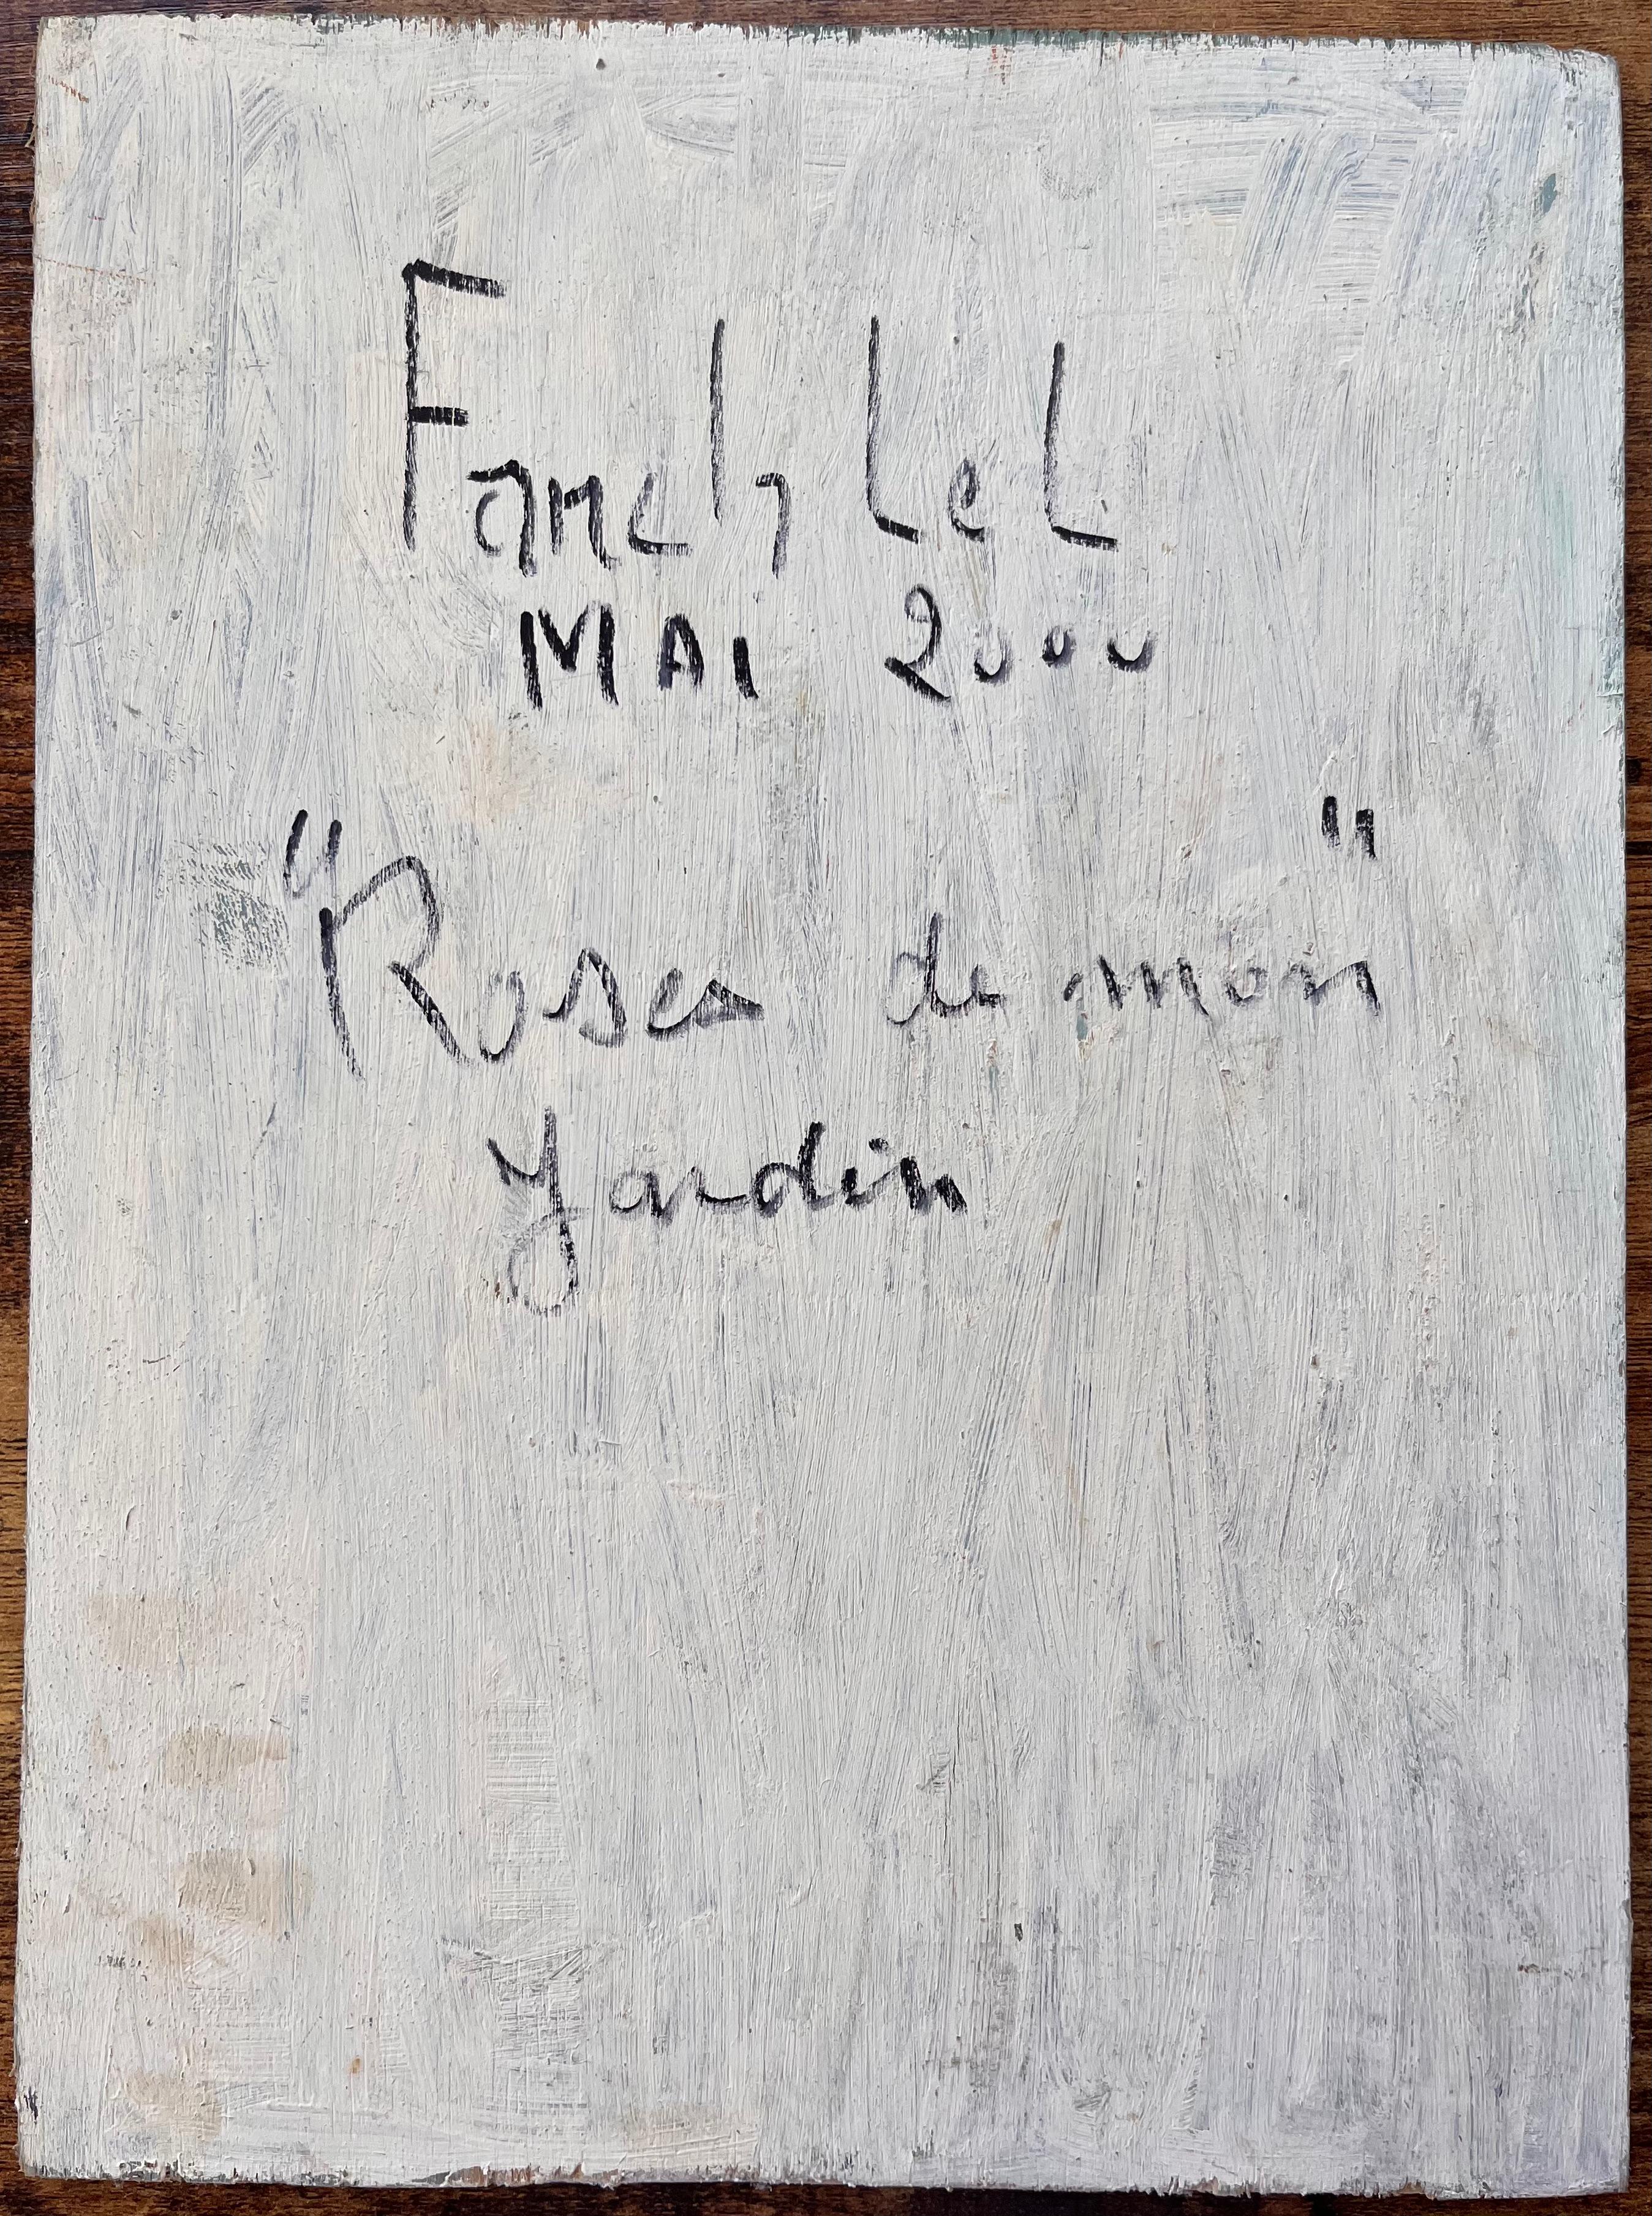 Fanch Lel
MAI 2000
"Roses de mon"
Jardin